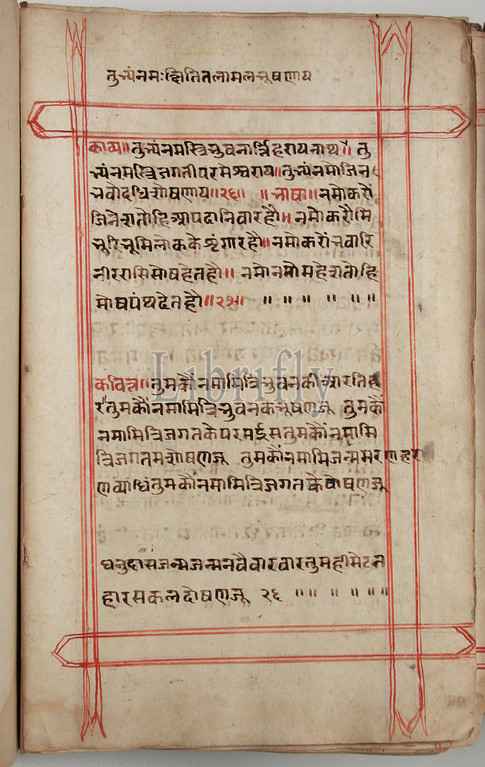 तुभ्यंनमःक्षितितलामलभूषणाय
काव्य॥तुभ्यंनमस्त्रिभुवनार्त्तिहरायनाथ॥तु
भ्यंनमस्त्रिजगतीपरमेश्वराय॥तुभ्यंनमोजिन
भवोदधिशोषणाय॥२६॥ ॥भाषा॥नमोकरों
जिनेशतोहिआपदानिवारहौ॥नमोकरोंमि
भूरिभूमिलोकके श्रृंगारहौ॥नमोकरोंभवाब्धि
नीरराशिसोषहेतहौ॥ नमोनमोमहेशतोहि
मोषपंथदेतहौ॥२५॥ ॥ ॥ ॥ ॥ ॥ ॥
Librifly
कवित्त॥तुमकौंनमामित्रिभुवनकीआरतिह
रतुमकौंनमामित्रिभुवनकेभूषणजू तुमकौं
नमामित्रिजगतकेपरमईसतुमकौंनमामि
तुमकौंनमामिजन्ममरणहर
तुमकौंनमामित्रिजगतकेपोषणजू
धनुदासजन्मजन्मनवैवारवारतुमहीमेटन
हारसकलदोषणजू २६ ॥ ॥ ॥ ॥ ॥ ॥